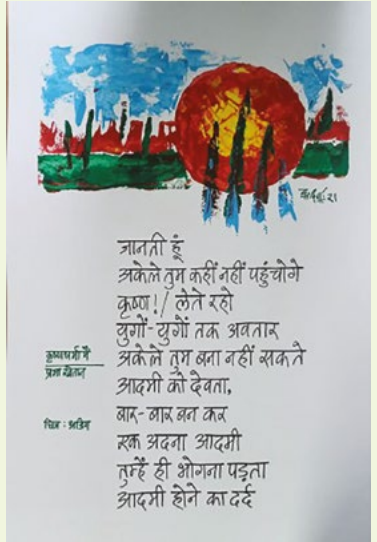 जानती हूं
अकेले तुम कहीं नहीं पहुंचोगे
कृष्ण!/ लेते रहो
युगों-युगों तक अवतार
अकेले तुम बना नहीं सकते
आदमी को देवता,
बार-बार बन कर
एक अदना आदमी
तुम्हें ही भोगना पड़ता
आदमी होने का दर्द
कृष्णधर्मा मैं
प्रभा खेतान
चित्र : अडिग